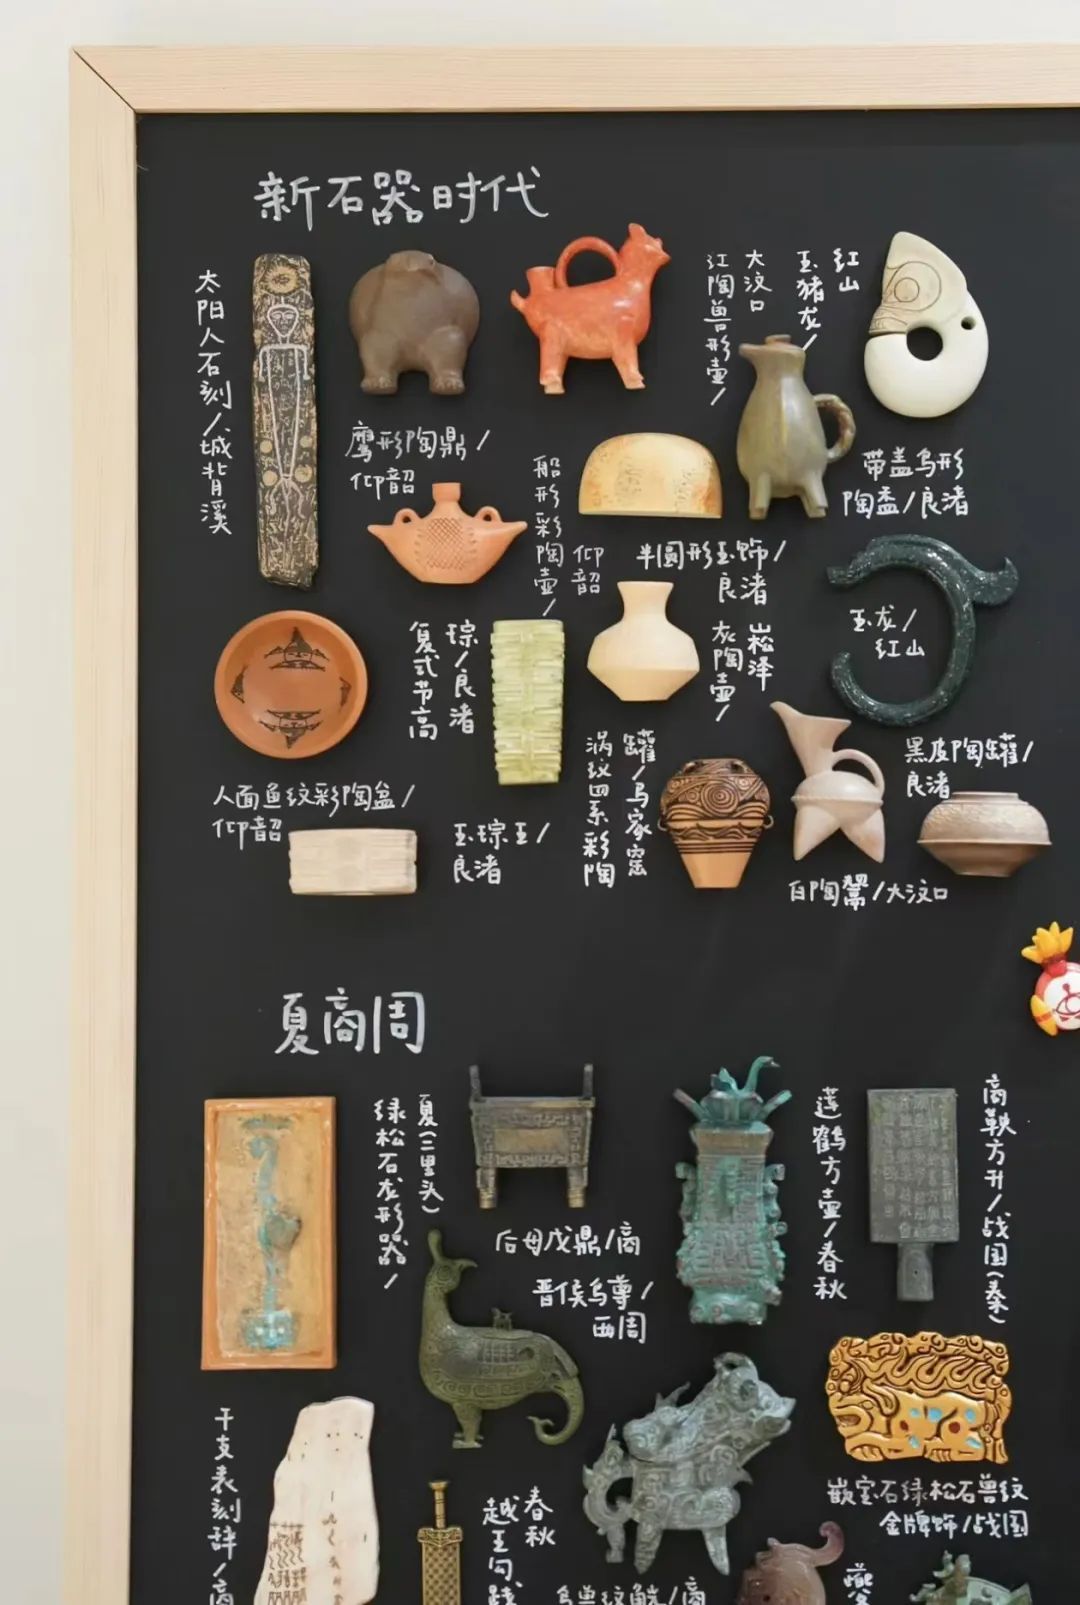 新石器时代
太阳人石刻/城背溪
鹰形陶鼎/
仰韶
大汶口
红陶兽形壶/
红山
玉猪龙/
带盖鸟形
陶盉/良渚
船形彩陶壶/
仰韶
半圆形玉饰/
良渚
玉龙/
红山
人面鱼纹彩陶盆/
仰韶
琮/良渚
复式节高
玉琮王/
良渚
崧泽
灰陶壶/
罐/马家窑
涡纹四系彩陶
白陶鬶/大汶口
黑皮陶罐/
良渚
夏商周
夏(二里头)
绿松石龙形器/
后母戊鼎/商
晋侯鸟尊/
西周
莲鹤方壶/春秋
商鞅方升/战国(秦)
干支表刻辞/商
春秋
越王勾践
鸟兽纹觥/商
嵌宝石绿松石兽纹
金牌饰/战国